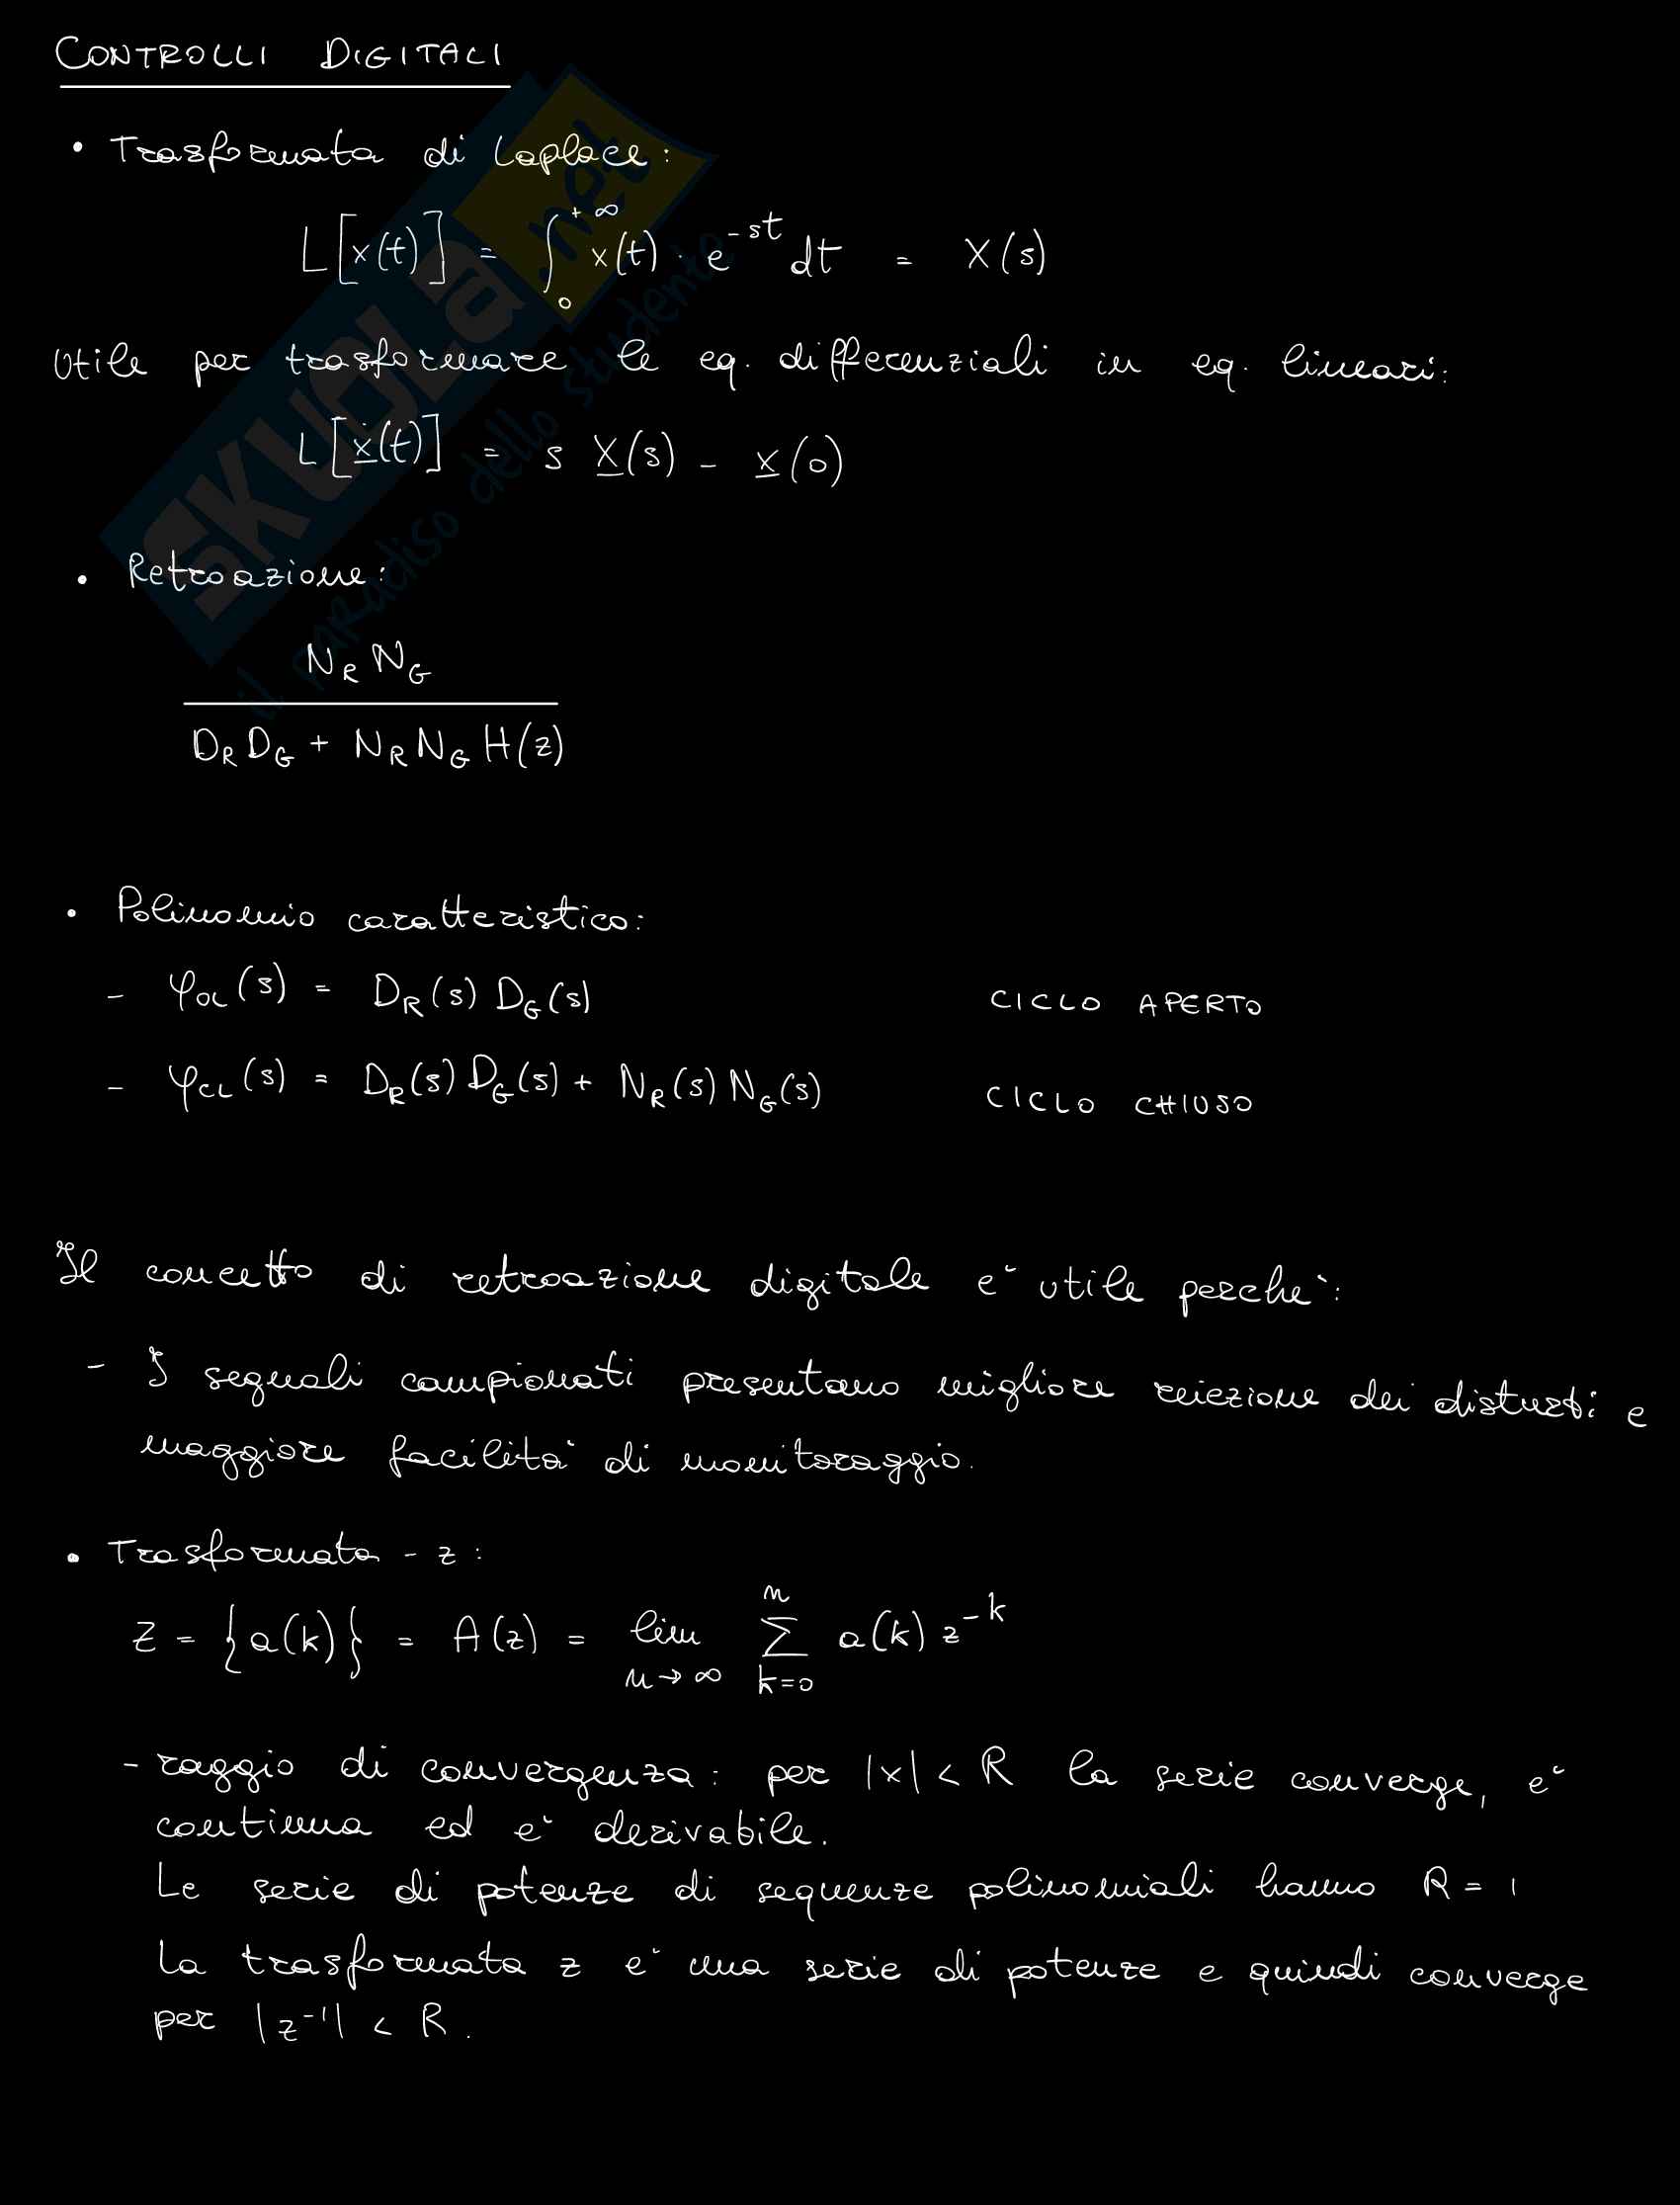 CONTROLLI DIGITALI
• Trasformata di Laplace:
L[x(t)] = ∫₀^{+∞} x(t) · e^{-st} dt = X(s)
Utile per trasformare le eq. differenziali in eq. lineari:
L[ẋ(t)] = s X(s) - x(0)
• Retroazione:
N_R N_G
D_R D_G + N_R N_G H(z)
• Polinomio caratteristico:
- φ_OL(s) = D_R(s) D_G(s) CICLO APERTO
- φ_CL(s) = D_R(s) D_G(s) + N_R(s) N_G(s) CICLO CHIUSO
Il concetto di retroazione digitale e` utile perche`:
- I segnali campionati presentano migliore reiezione dei disturbi e
maggiore facilita` di monitoraggio.
• Trasformata - z:
Z = {a(k)} = A(z) = lim_{n→∞} Σ_{k=0}^{n} a(k) z^{-k}
- raggio di convergenza: per |x| < R la serie converge, e`
continua ed e` derivabile.
Le serie di potenze di sequenze polinomiali hanno R = 1
La trasformata z e` una serie di potenze e quindi converge
per |z^{-1}| < R.
SKUOLA.net
il paradiso dello studente